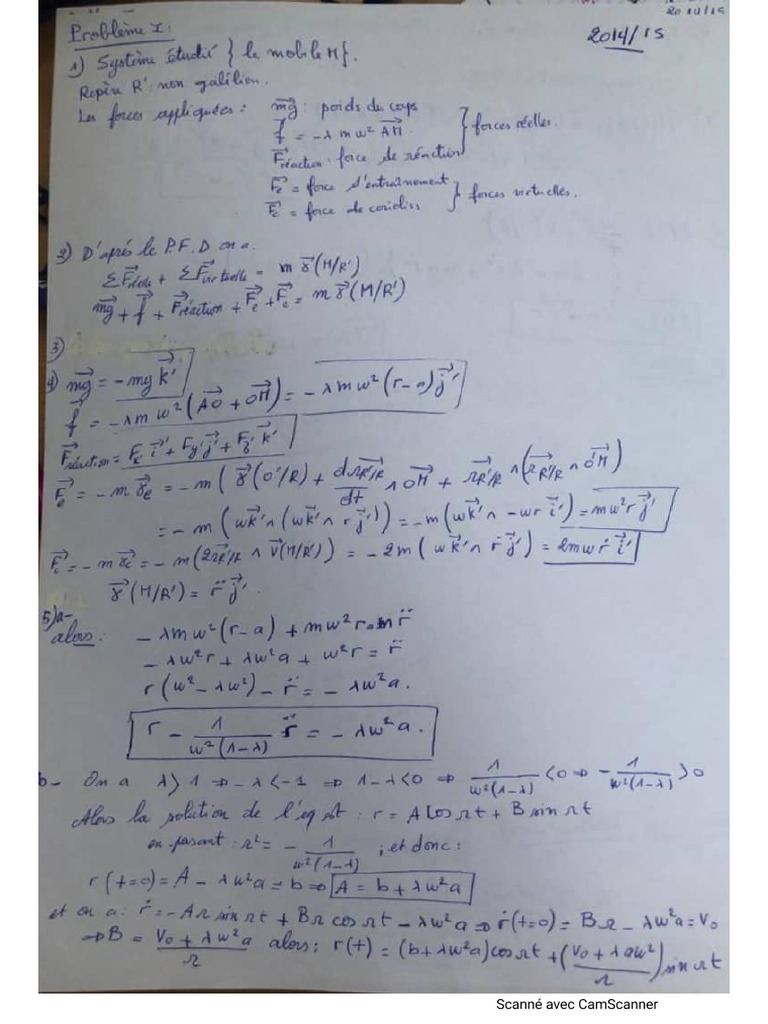 2014/15
Problème I:
2014/15
1) Système étudié } le mobile M{.
Repère R' : non galiléen.
Les forces appliquées : m\vec{g} : poids du corps
\vec{f} = -λ m ω² \vec{AM} } forces réelles.
\vec{F}réaction : force de réaction
\vec{F}e = force d'entraînement
\vec{F}c = force de coriolis } forces virtuelles.
2) D'après le P.F.D on a :
Σ\vec{F}réelle + Σ\vec{F}virtuelle = m \vec{γ}(M/R')
m\vec{g} + \vec{f} + \vec{F}réaction + \vec{F}e + \vec{F}c = m \vec{γ}(M/R')
3)
4) m\vec{g} = -mg \vec{k}'
\vec{f} = -λ m ω² (\vec{AO} + \vec{OM}) = -λ m ω² (r-a) \vec{j}'
\vec{F}réaction = Fx \vec{i}' + Fy' \vec{j}' + Fz' \vec{k}'
\vec{F}e = -m \vec{γ}e = -m ( \vec{γ}(O'/R) + d\vec{Ω}R'/R / dt ∧ \vec{OM} + \vec{Ω}R'/R ∧ (\vec{Ω}R'/R ∧ \vec{O'M})
= -m (ω\vec{k}' ∧ (ω\vec{k}' ∧ r \vec{j}')) = -m(ω\vec{k}' ∧ -ωr \vec{i}') = mω²r \vec{j}'
\vec{F}c = -m \vec{γ}c = -m (2\vec{Ω}R'/R ∧ \vec{V}(M/R')) = -2m ( ω\vec{k}' ∧ ṙ \vec{j}') = 2mωṙ \vec{i}'
\vec{γ}(M/R') = r̈ \vec{j}'
5) a-
alors : -λmω²(r-a) + mω²r = m r̈
-λω²r + λω²a + ω²r = r̈
r(ω² - λω²) - r̈ = -λω²a.
r - 1/(ω²(1-λ)) r̈ = -λω²a.
b- On a λ > 1 ⇒ -λ < -1 ⇒ 1-λ < 0 ⇒ 1/(ω²(1-λ)) < 0 ⇒ - 1/(ω²(1-λ)) > 0
Alors la solution de l'eq est : r = A cos Ωt + B sin Ωt
en posant : Ω² = - 1/(ω²(1-λ)) ; et donc :
r(t=0) = A - λω²a = b ⇒ A = b + λω²a
et on a : ṙ = -AΩ sin Ωt + BΩ cos Ωt - λω²a ⇒ ṙ(t=0) = BΩ - λω²a = V₀
⇒ B = (V₀ + λω²a)/Ω alors : r(t) = (b + λω²a) cos Ωt + ((V₀ + λaω²)/Ω) sin Ωt
Scanné avec CamScanner